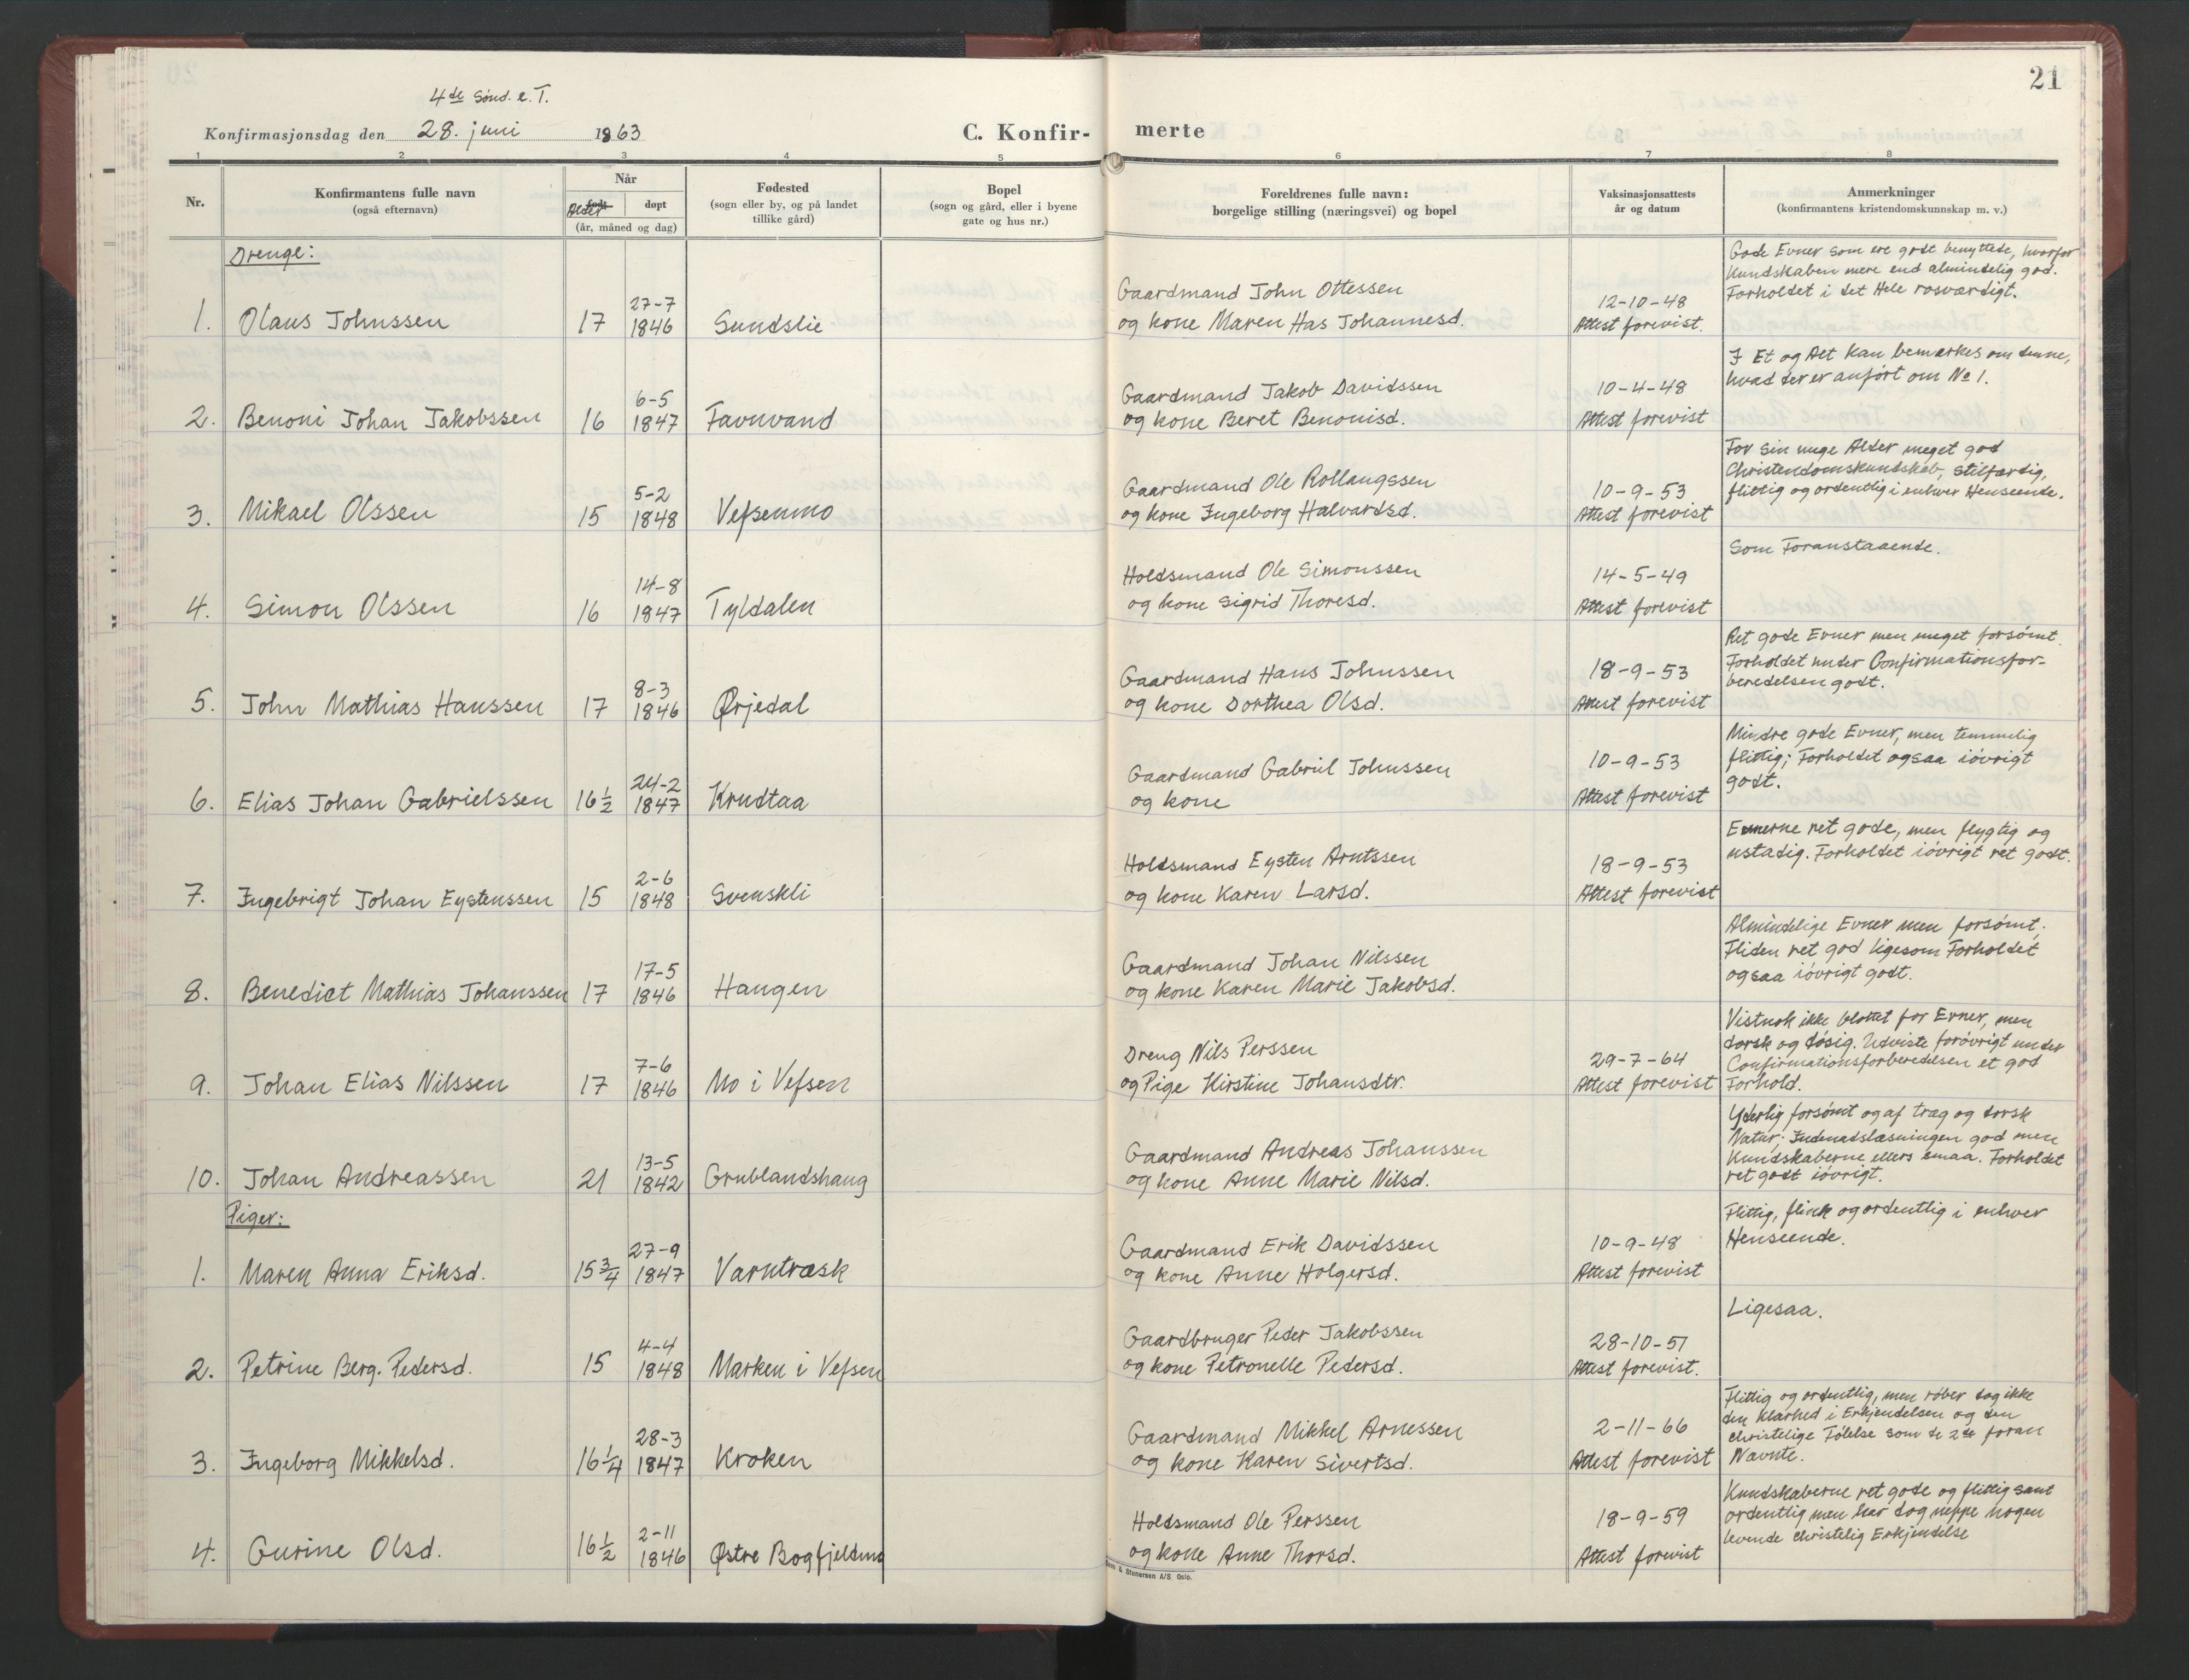 21
4de Sønd. e. T.
Konfirmasjonsdag den 28. juni 1863
C. Konfir-
merte
1 2 3 4 5 6 7 8
Nr.
Konfirmantens fulle navn
(også efternavn)
Når
Alder født
døpt
(år, måned og dag)
Fødested
(sogn eller by, og på landet
tillike gård)
Bopel
(sogn og gård, eller i byene
gate og hus nr.)
Foreldrenes fulle navn:
borgelige stilling (næringsvei) og bopel
Vaksinasjonsattests
år og datum
Anmerkninger
(konfirmantens kristendomskunnskap m. v.)
Drenge:
1. Olaus Johnssen 17 27-7 1846 Sundslie
Gaardmand John Ottessen
og kone Maren Has Johannesd.
12-10-48
Attest forevist.
Gode Evner som ere godt benyttede, hvorfor
Kundskaben mere end almindelig god.
Forholdet i det Hele rosværdigt.
2. Benoni Johan Jakobssen 16 6-5 1847 Favnvand
Gaardmand Jakob Davidssen
og kone Beret Benonisd.
10-4-48
Attest forevist
I Et og Alt kan bemærkes om denne,
hvad der er anført om No 1.
3. Mikael Olssen 15 5-2 1848 Vefsenmo
Gaardmand Ole Rollaugssen
og kone Ingeborg Halvardsd.
10-9-53
Attest forevist
For sin unge Alder meget god
Christendomskundskab, stilfærdig,
flittig og ordentlig i enhver Henseende.
4. Simon Olssen 16 14-8 1847 Tyldalen
Holdsmand Ole Simonssen
og kone Sigrid Thoresd.
14-5-49
Attest forevist
Som Foranstaaende.
5. John Mathias Hanssen 17 8-3 1846 Ørjedal
Gaardmand Hans Johnssen
og kone Dorthea Olsd.
18-9-53
Attest forevist
Ret gode Evner men meget forsømt.
Forholdet under Confirmationsfor-
beredelsen godt.
6. Elias Johan Gabrielssen 16½ 24-2 1847 Krudtaa
Gaardmand Gabriel Johnssen
og kone
10-9-53
Attest forevist
Mindre gode Evner, men temmelig
flittig; Forholdet ogsaa iøvrigt
godt.
7. Ingebrigt Johan Eystenssen 15 2-6 1848 Svenskli
Holdsmand Eysten Arntssen
og kone Karen Larsd.
18-9-53
Attest forevist
Evnerne ret gode, men flygtig og
ustadig. Forholdet iøvrigt ret godt.
8. Benedict Mathias Johanssen 17 17-5 1846 Haugen
Gaardmand Johan Nilssen
og kone Karen Marie Jakobsd.
Almindelige Evner men forsømt.
Fliden ret god ligesom Forholdet
ogsaa iøvrigt godt.
9. Johan Elias Nilssen 17 7-6 1846 Mo i Vefsen
Dreng Nils Perssen
og Pige Kirstine Johansdtr.
29-7-64
Attest forevist
Vistnok ikke blottet for Evner, men
dorsk og døsig. Udviste forøvrigt under
Confirmationsforberedelsen et god
Forhold.
10. Johan Andreassen 21 13-5 1842 Grublandshaug
Gaardmand Andreas Johanssen
og kone Anne Marie Nilsd.
Yderlig forsømt og af træg og dorsk
Natur; Indenadslæsningen god men
Kundskaberne ellers smaa. Forholdet
ret godt iøvrigt.
Piger:
1. Maren Anna Eriksd. 15¾ 27-9 1847 Varntræsk
Gaardmand Erik Davidssen
og kone Anne Holgersd.
10-9-48
Attest forevist
Flittig, flink og ordentlig i enhver
Henseende.
2. Petrine Berg. Pedersd. 15 4-4 1848 Marken i Vefsen
Gaardbruger Peder Jakobssen
og kone Petronelle Pedersd.
28-10-51
Attest forevist.
Ligesaa.
3. Ingeborg Mikkelsd. 16¼ 28-3 1847 Kroken
Gaardmand Mikkel Arnessen
og kone Karen Sivertsd.
2-11-66
Attest forevist
Flittig og ordentlig, men røber dog ikke
den Klarhed i Erkjendelsen og den
christelige Følelse som de 2de foran
Nævnte.
4. Gurine Olsd. 16½ 2-11 1846 Østre Bogfjeldmo
Holdsmand Ole Perssen
og kone Anne Thorsd.
18-9-59
Attest forevist
Kundskaberne ret gode og flittig samt
ordentlig men har dog neppe nogen
levende christelig Erkjendelse
& Stenersen A/S Oslo.